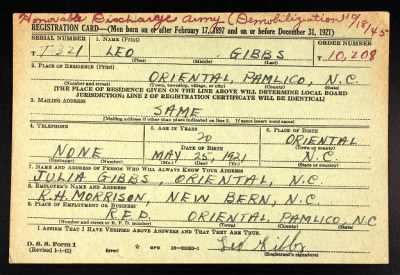 Honorable Discharge Army (Demobilization) 10/18/45
REGISTRATION CARD—(Men born on or after February 17, 1897 and on or before December 31, 1921)
SERIAL NUMBER 1. NAME (Print) ORDER NUMBER
T-221 LEO GIBBS T 10,208
(First) (Middle) (Last)
2. PLACE OF RESIDENCE (Print)
ORIENTAL, PAMLICO, N.C.
(Number and street) (Town, township, village, or city) (County) (State)
[THE PLACE OF RESIDENCE GIVEN ON THE LINE ABOVE WILL DETERMINE LOCAL BOARD
JURISDICTION; LINE 2 OF REGISTRATION CERTIFICATE WILL BE IDENTICAL]
3. MAILING ADDRESS
SAME
[Mailing address if other than place indicated on line 2. If same insert word same]
4. TELEPHONE 5. AGE IN YEARS 6. PLACE OF BIRTH
20 ORIENTAL
DATE OF BIRTH (Town or county)
NONE MAY 25, 1921 N.C.
(Exchange) (Number) (Mo.) (Day) (Yr.) (State or country)
7. NAME AND ADDRESS OF PERSON WHO WILL ALWAYS KNOW YOUR ADDRESS
JULIA GIBBS, ORIENTAL, N.C.
8. EMPLOYER'S NAME AND ADDRESS
R.H. MORRISON, NEW BERN, N.C.
9. PLACE OF EMPLOYMENT OR BUSINESS
R.F.D. ORIENTAL PAMLICO, N.C
(Number and street or R. F. D. number) (Town) (County) (State)
I AFFIRM THAT I HAVE VERIFIED ABOVE ANSWERS AND THAT THEY ARE TRUE.
D. S. S. Form 1 Leo Gibbs
(Revised 1-1-42) (over) GPO (Registrant's signature)